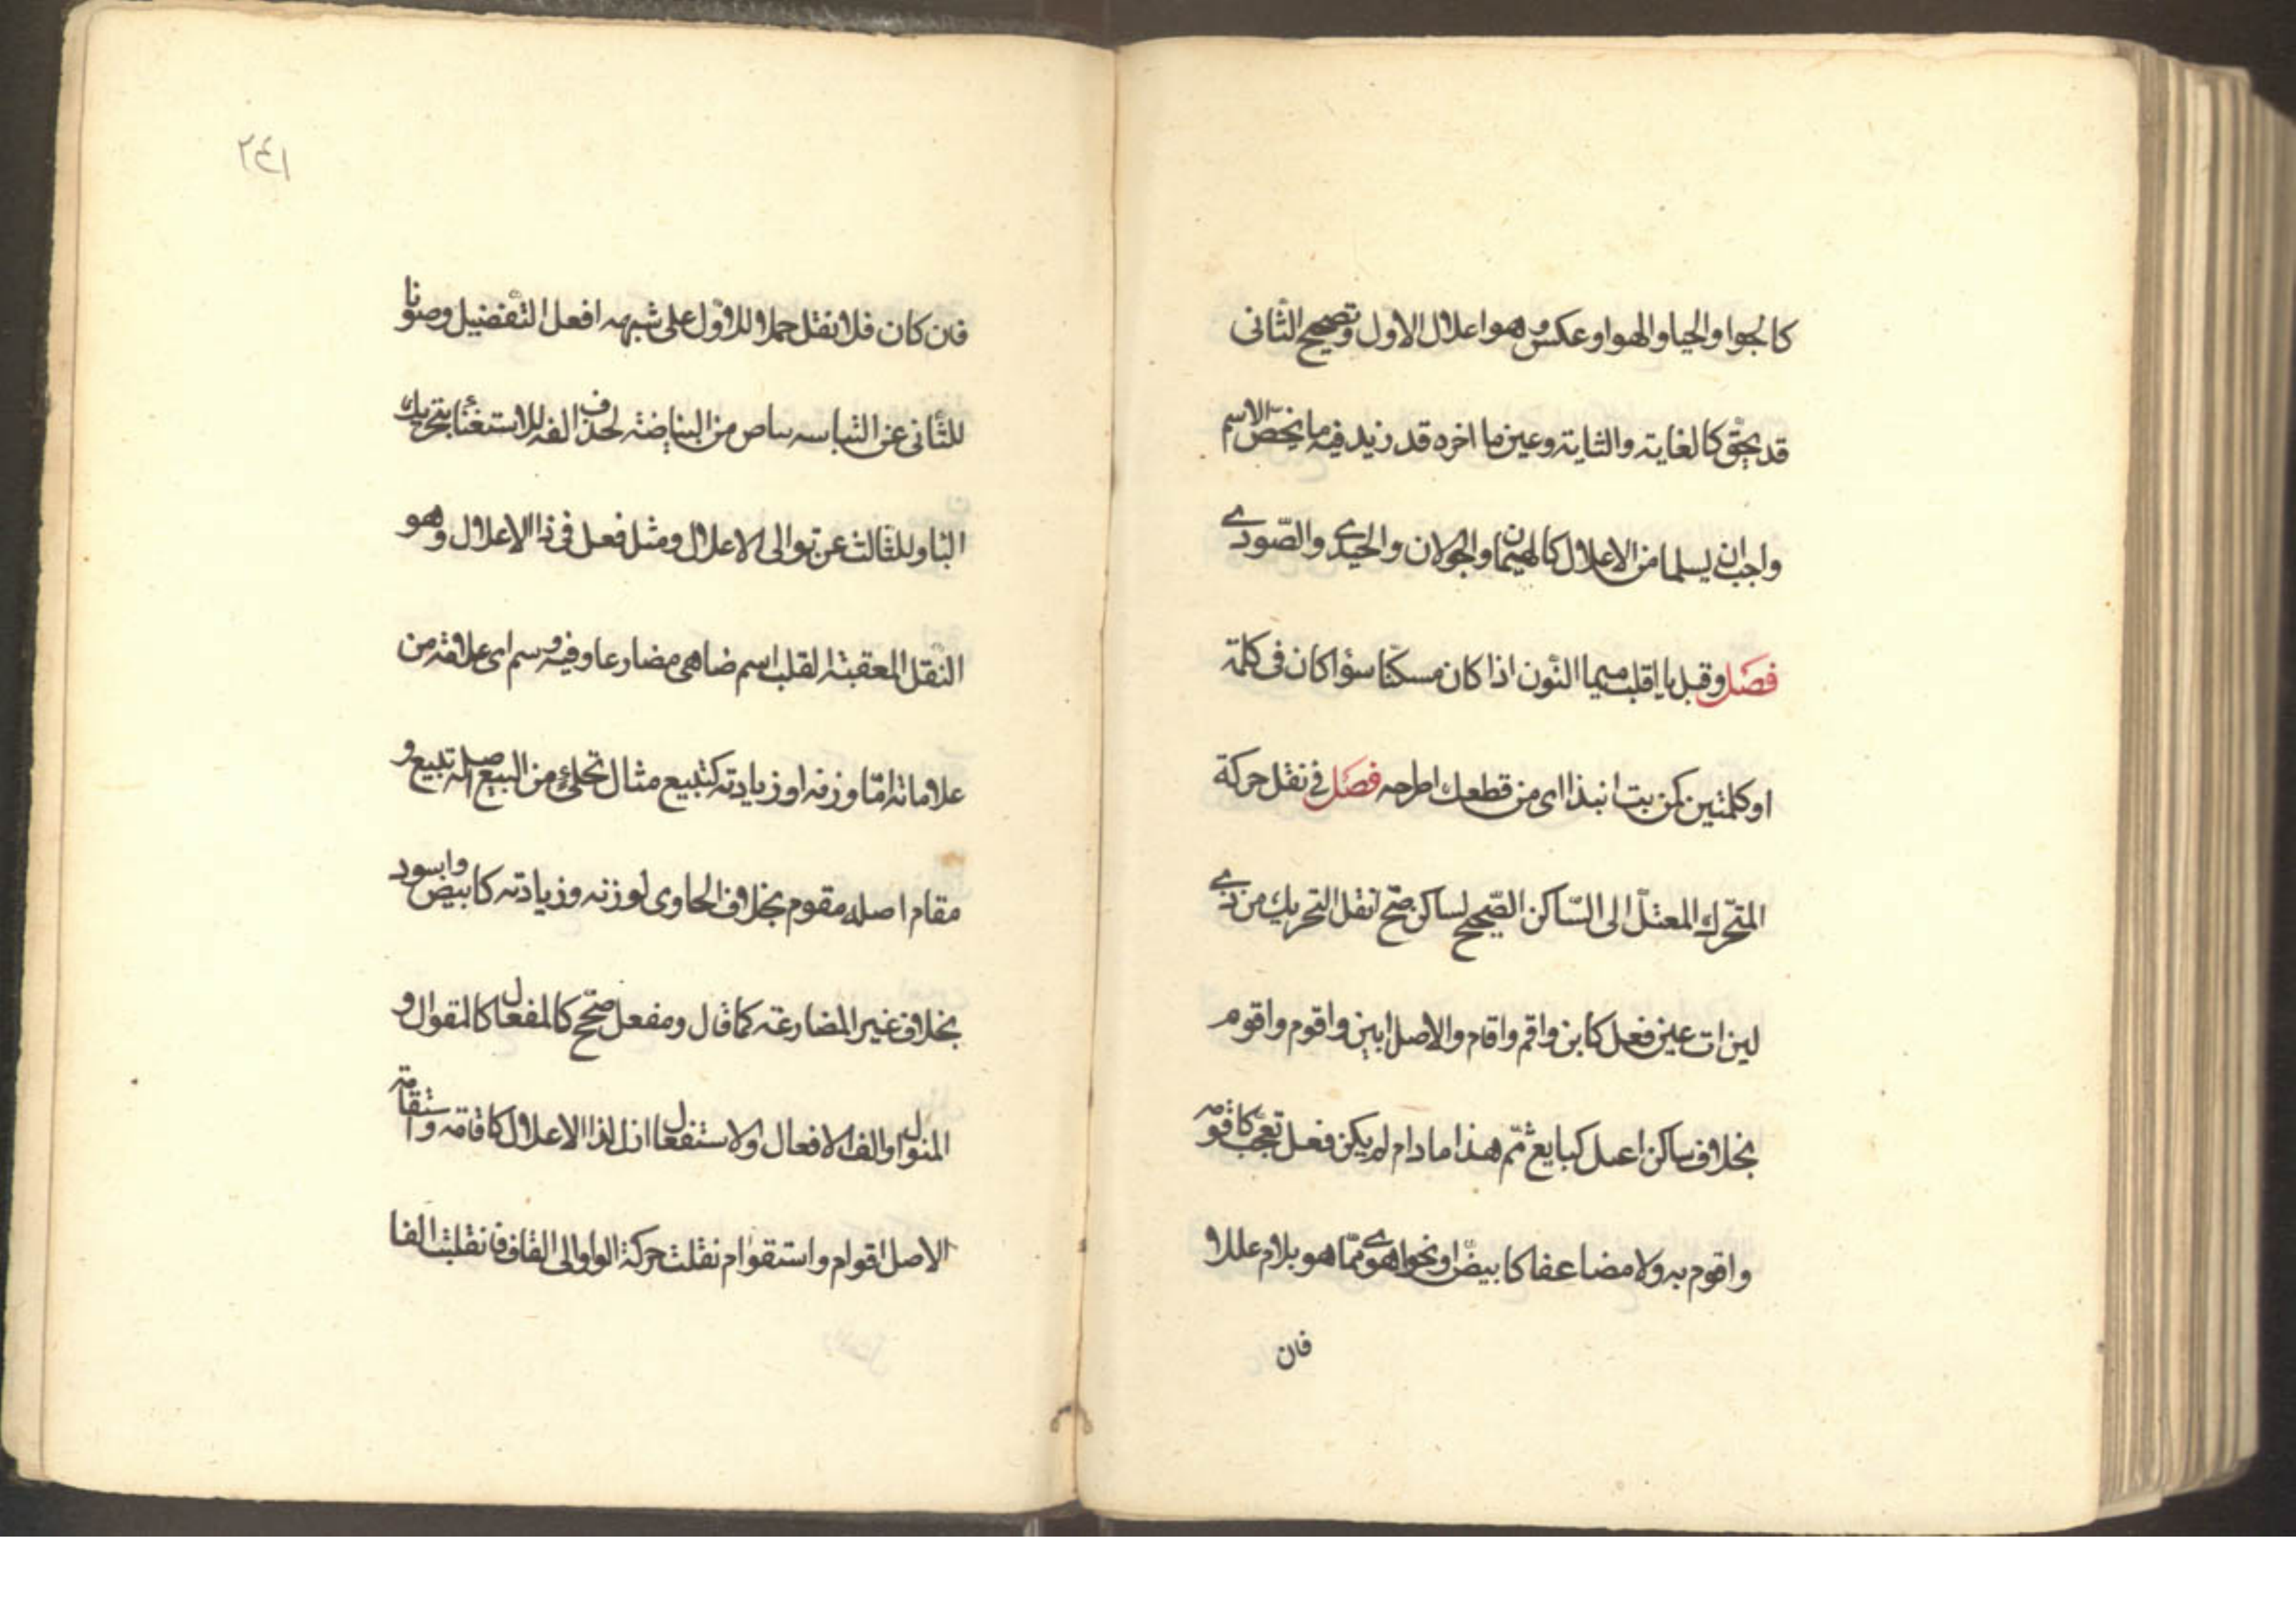 كالجوا والحيا والهوا وعكس وهو اعلال الاول وتصحيح الثانى
قد يحق كالغاية والثاية وعين ما اخره قد زيد فيه ما يخص الاسم
واجب ان يسلما من الاعلال كالهيمان والجولان والحيدى والصّورى
فصل وقبل با اقلب ميما النّون اذا كان مسكنا سوٓا كان فى كلمة
او كلمتين كمن بت انبذا اى من قطعك اطرحه فصل فى نقل حركة
المتحرّك المعتلّ الى السّاكن الصّحيح لساكن صح انقل التحريك من ذى
لين ات عين فعل كابن واقم واقام والاصل ابين واقوم واقوم
بخلاف ساكن اعل كبايع ثمّ هذا ما دام لم يكن فعل تعجب كاقومه
واقوم به ولا مضاعفا كابيضّ او نحو اهوى ممّا هو بلام عللا
فان
٢٤١
فان كان فلا نقل حملا للاوّل على شبهه افعل التّفضيل وصونا
للثّانى عن التباسه بباض من البضاضة لحذف الفه للاستغنا بتحريك
البا وللثّالث عن توالى الاعلال ومثل فعل فى ذا الاعلال وهو
النّقل المعقبة القلب اسم ضاهى مضارعا وفيه وسم اى علامة من
علاماته امّا وزنه او زيادته كتبيع مثال تحلئ من البيع اصله تبيع و
مقام اصله مقوم بخلاف الحاوى لوزنه وزيادته كابيض واسود
بخلاف غير المضارعة كما قال ومفعل صحّح كالمفعال كالمقوال و
المنوال والف الافعال والاستفعال ازل لذا الاعلال كاقامة واستقامة
الاصل اقوام واستقوام نقلت حركة الواو الى القاف فانقلبت الفا